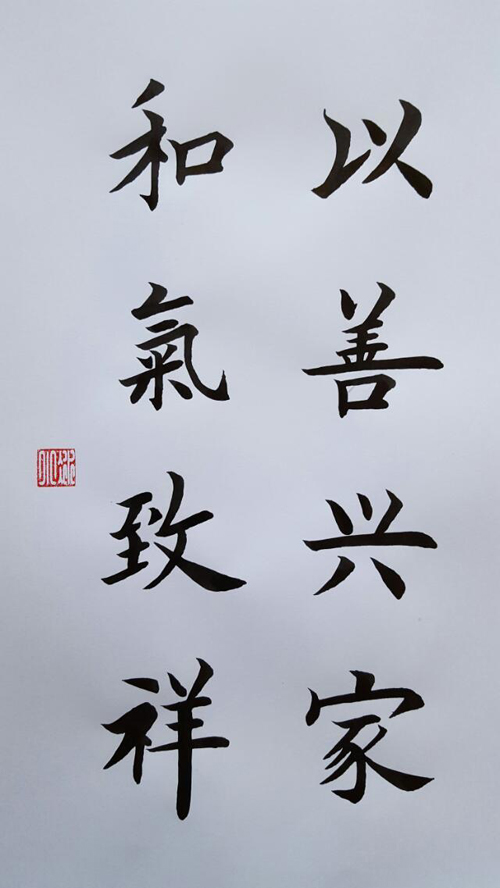 以善兴家
和氣致祥